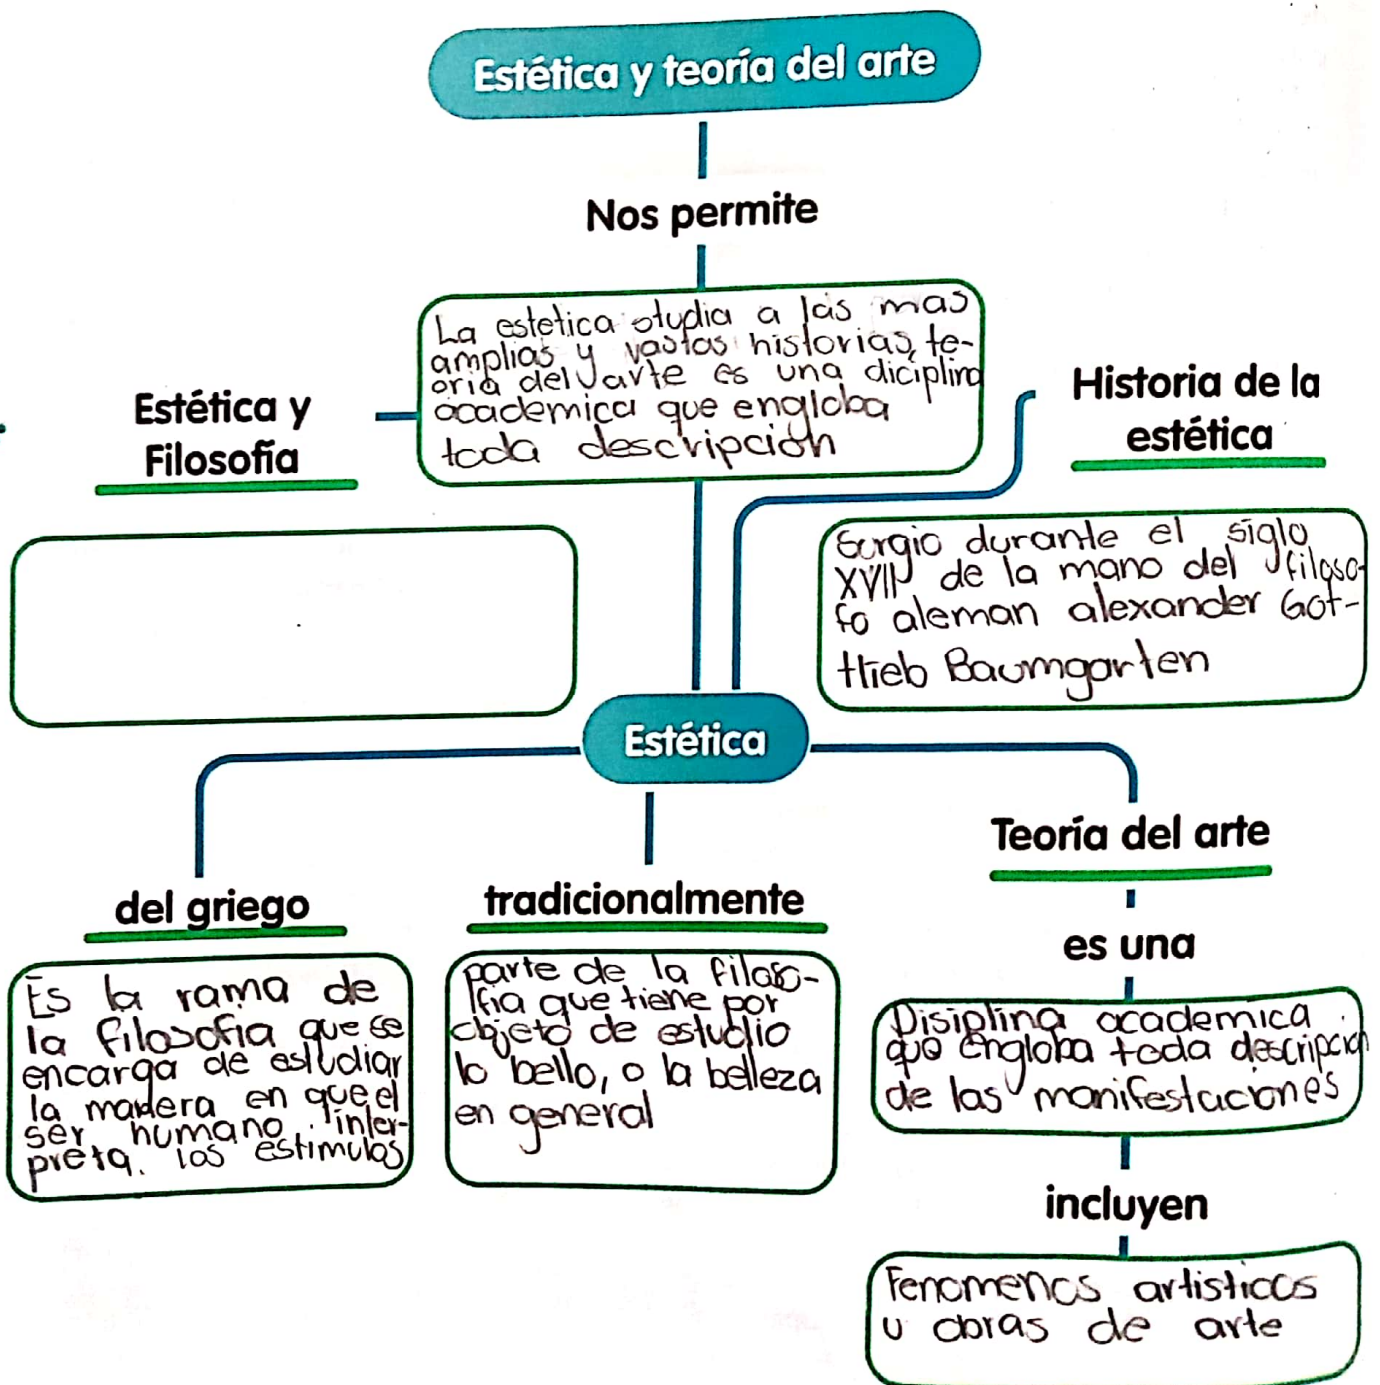 Estética y teoría del arte
Nos permite
La estetica studia a las mas
amplias y vastas historias, te-
oria del arte es una diciplina
academica que engloba
toda descripción
Estética y
Filosofía
Historia de la
estética
Surgio durante el siglo
XVIII de la mano del filoso-
fo aleman alexander Got-
tlieb Baumgarten
Estética
del griego
Es la rama de
la filosofia que se
encarga de estudiar
la manera en que el
ser humano inter-
preta. los estimulos
tradicionalmente
parte de la filoso-
fia que tiene por
objeto de estudio
lo bello, o la belleza
en general
Teoría del arte
es una
Disiplina academica
que engloba toda descripcion
de las manifestaciones
incluyen
Fenomenos artisticos
u obras de arte